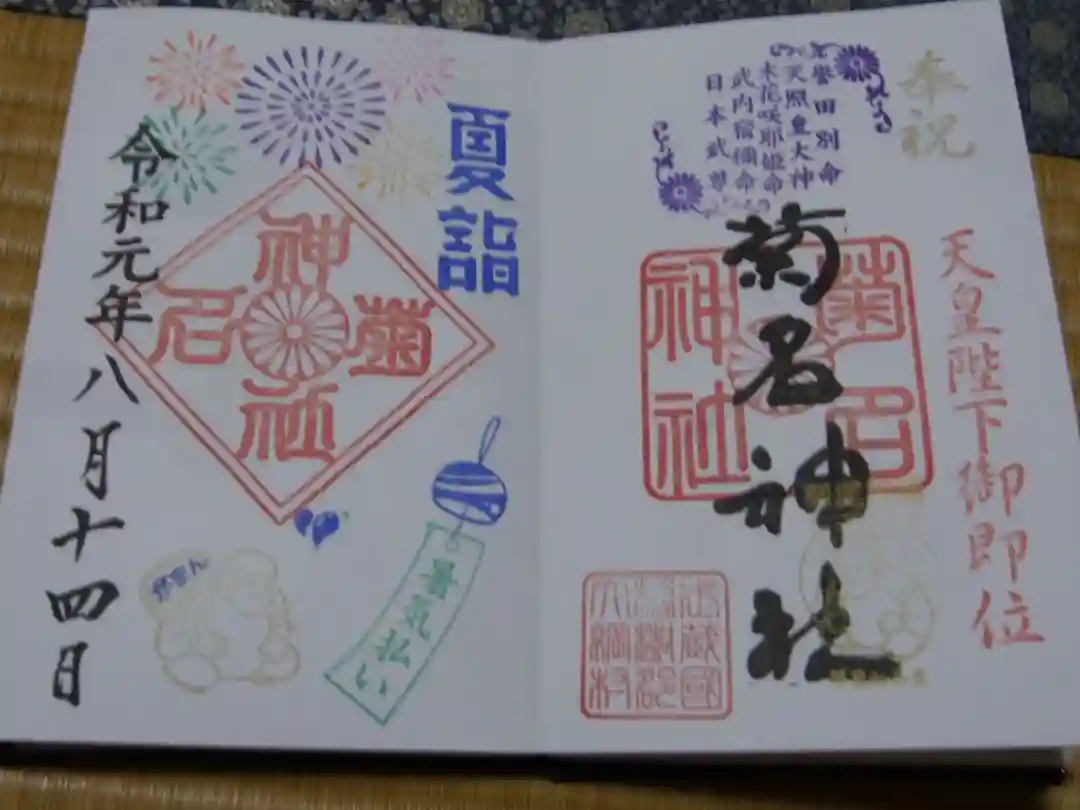 奉祝
天皇陛下御即位
誉田別命
天照皇大神
木花咲耶姫命
武内宿禰命
日本武尊
菊名神社
菊名
神社
武蔵國
橘樹郡
大綱村
夏詣
菊名神社
暑気払い
がまん
令和元年八月十四日